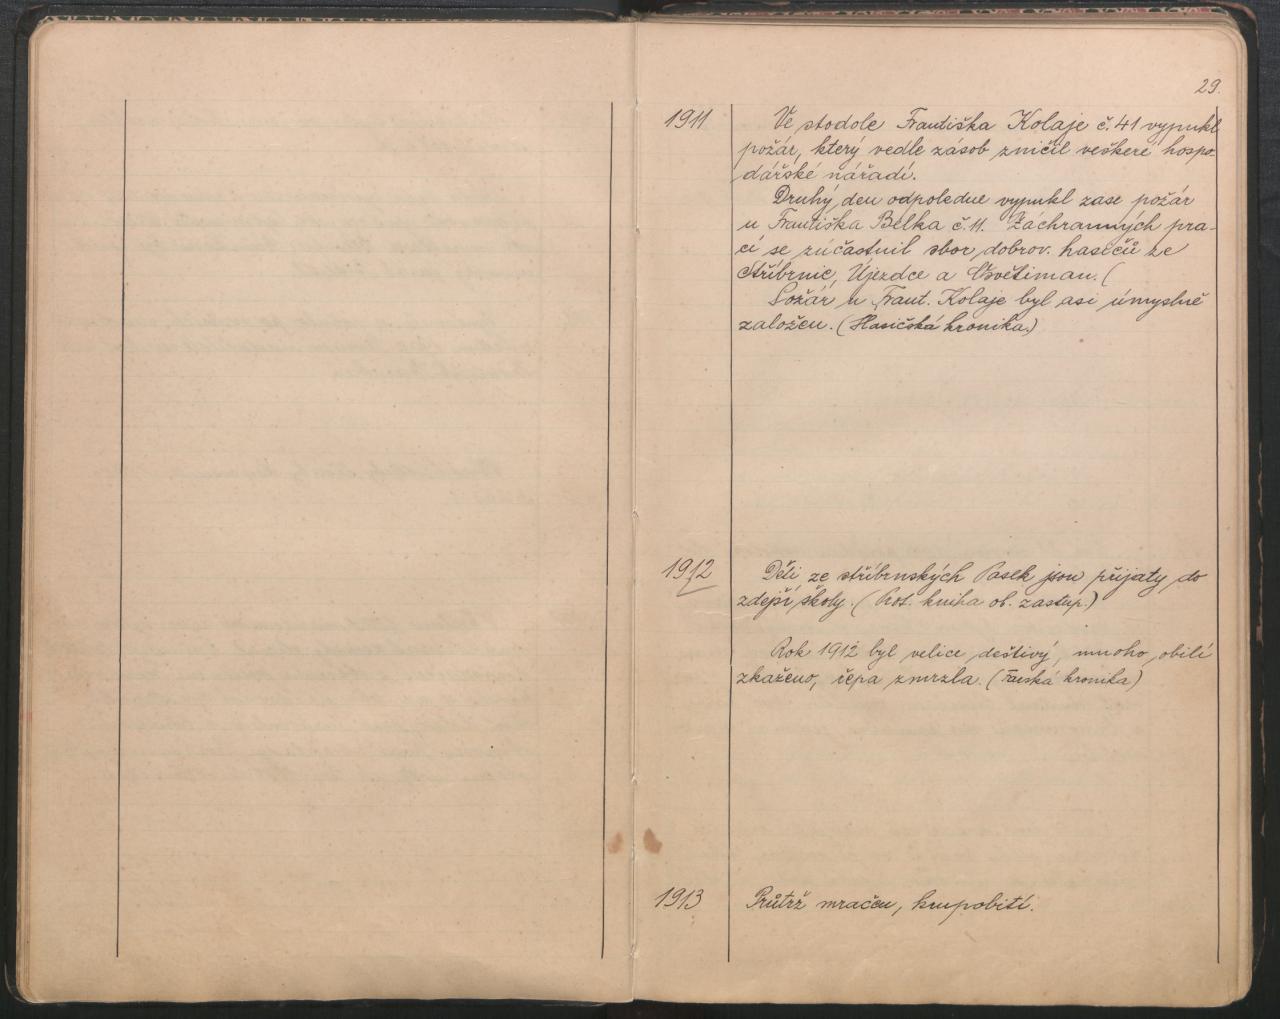 29.
1911 Ve stodole Františka Kolaje č. 41 vypukl
požár, který vedle zásob zničil veškeré hospo-
dářské nářadí.
Druhý den odpoledne vypukl zase požár
u Františka Bělka č. 11. Záchranných pra-
cí se zúčastnil sbor dobrov. hasičů ze
Stříbrnic, Újezdce a Osvětiman. (
Požár u Frant. Kolaje byl asi úmyslně
založen. (Hasičská kronika.)
1912 Děti ze stříbrnských Pasek jsou přijaty do
zdejší školy. (Prot. kniha ob. zastup.)
Rok 1912 byl velice deštivý, mnoho obilí
zkaženo, řepa zmrzla. (Farská kronika)
1913 Průtrž mračen, krupobití.